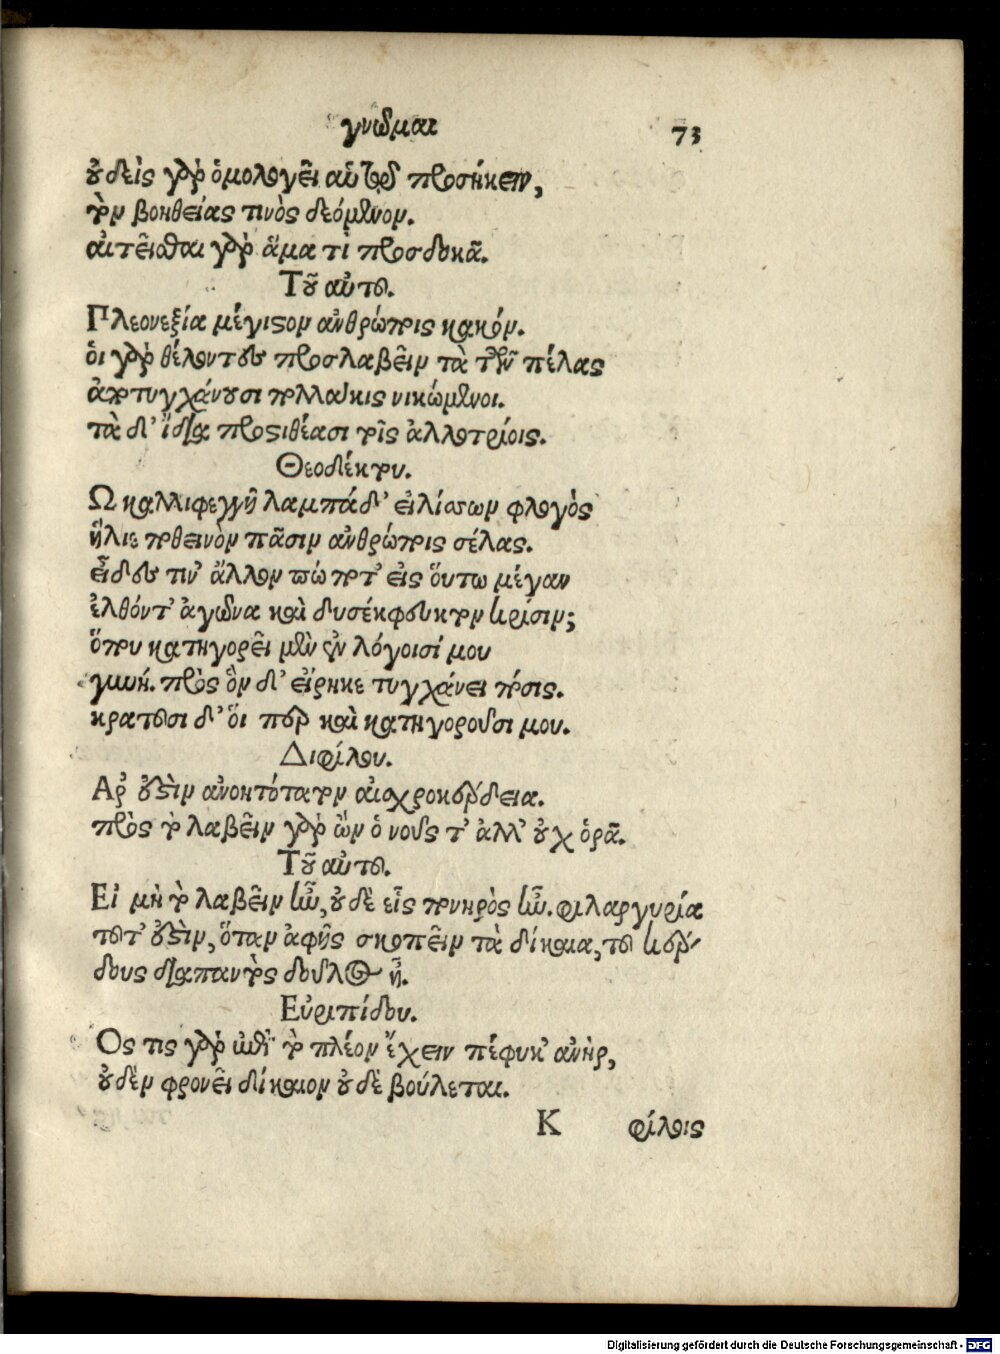 γνῶμαι 73
οὐδεὶς γὰρ ὁμολογεῖ αὑτῷ προσήκειν,
τὸν βοηθείας τινὸς δεόμενον.
αἰτεῖσθαι γὰρ ἅμα τὶ προσδοκᾷ.
Τοῦ αὐτοῦ.
Πλεονεξία μέγιστον ἀνθρώποις κακόν.
ὁι γὰρ θέλοντες προσλαβεῖν τὰ τῶν πέλας
ἀποτυγχάνουσι πολλάκις νικώμενοι.
τὰ δ' ἴδια προστιθέασι τοῖς ἀλλοτρίοις.
Θεοδέκτου.
Ω καλλιφεγγῆ λαμπάδ' εἱλίσσων φλογὸς
ἥλιε ποθεινὸν πᾶσιν ἀνθρώποις σέλας.
εἶδες τιν' ἄλλον πώποτ' εἰς ὅυτω μέγαν
ἐλθόντ' ἀγῶνα καὶ δυσέκφευκτον κρίσιν;
ὅπου κατηγορεῖ μὲν ἐν λόγοισί μου
γυνή. πρὸς ὃν δ' εἴρηκε τυγχάνει πόσις.
κρατοῦσι δ' ὅι περ καὶ κατηγοροῦσί μου.
Διφίλου.
Αρ' ἐστὶν ἀνοητότατον αἰσχροκέρδεια.
πρὸς τὸ λαβεῖν γὰρ ὢν ὁ νοῦς τ' ἀλλ' οὐχ ὁρᾷ.
Τοῦ αὐτοῦ.
Εἰ μὴ τὸ λαβεῖν ἦν, οὐδὲ εἷς πονηρὸς ἦν. φιλαργυρία
τοῦτ' ἐστὶν, ὅταν ἀφεὶς σκοπεῖν τὰ δίκαια, τοῦ κέρ-
δους διαπαντὸς δοῦλος ᾖ.
Εὐριπίδου.
Ος τις γὰρ ἀστῶν τὸ πλέον ἔχειν πέφυκ' ἀνὴρ,
οὐδὲν φρονεῖ δίκαιον οὐδὲ βούλεται.
K φίλοις
Digitalisierung gefördert durch die Deutsche Forschungsgemeinschaft - DFG